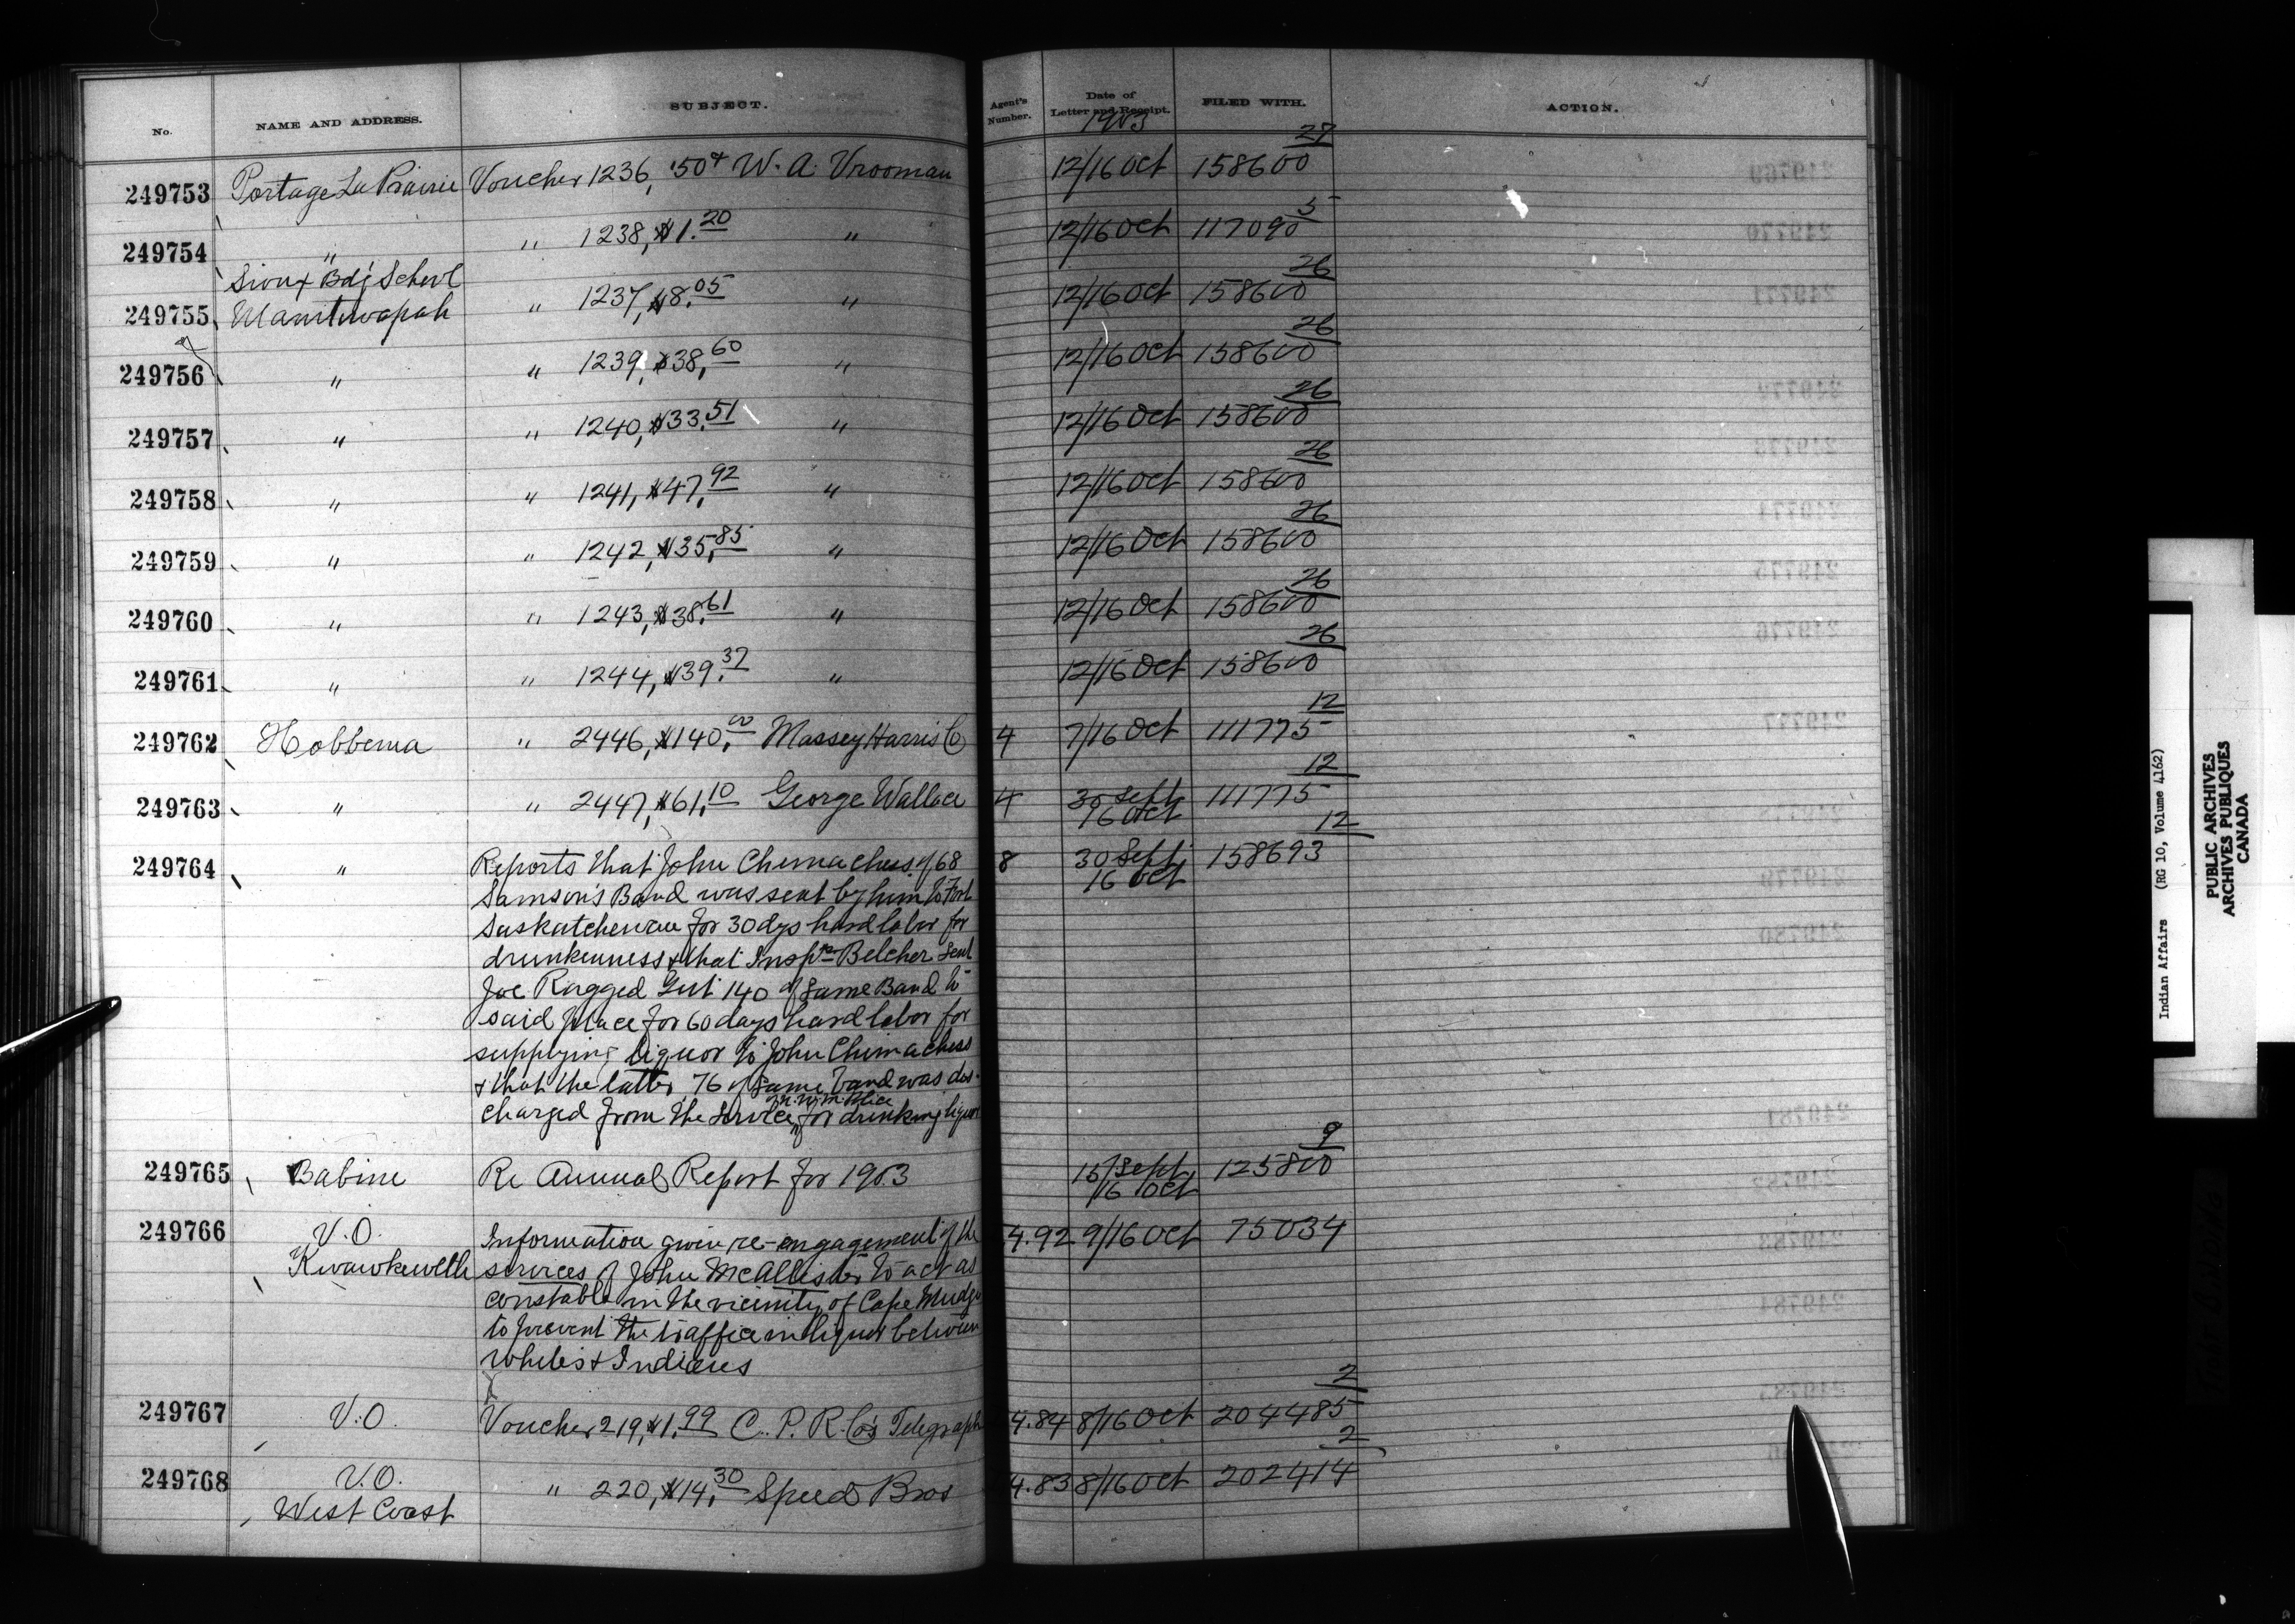 No. NAME AND ADDRESS. SUBJECT. Agent's Number. Date of Letter and Receipt. FILED WITH. ACTION.
1903
249753 Portage La Prairie Voucher 1236, .50¢ W. A. Vrooman 12/16 Oct 158600 27
249754 " " 1238, $1.20 " 12/16 Oct 117090 5
Sioux Bdg School
249755 Manitowapah " 1237, $8.05 " 12/16 Oct 158600 26
249756 " " 1239, $38.60 " 12/16 Oct 158600 26
249757 " " 1240, $33.51 " 12/16 Oct 158600 26
249758 " " 1241, $47.92 " 12/16 Oct 158600 26
249759 " " 1242, $35.85 " 12/16 Oct 158600 26
249760 " " 1243, $38.61 " 12/16 Oct 158600 26
249761 " " 1244, $39.37 " 12/16 Oct 158600 26
249762 Hobbema " 2446, $140.00 Massey Harris Co 4 7/16 Oct 111775 12
249763 " " 2447, $61.10 George Wallace 4 30 Sept 16 Oct 111775 12
249764 " Reports that John Chemachees of 68 8 30 Sept 16 Oct 158693 12
Samson's Band was sent by him to Fort
Saskatchewan for 30 dys hard labor for
drunkenness & that Inspr Belcher sent
Joe Ragged Gut 140 of same Band to
said place for 60 days hard labor for
supplying liquor to John Chemachees
& that the latter 76 of same band was dis-
charged from the service for drinking liquor
N.W.M. Police
249765 Babine Re Annual Report for 1903 15/Sept 16 Oct 125800 9
249766 V.O. Information given re-engagement of the 4.92 9/16 Oct 75034
Kwawkewlth services of John McAllister to act as
constable in the vicinity of Cape Mudge
to prevent the traffic in liquor between
whites & Indians
249767 V.O. Voucher 219, $1.99 C. P. R. Co's Telegraph 4.84 8/16 Oct 204485 2
249768 V.O. " 220, $14.30 Speed Bros 4.83 8/16 Oct 202414 2
West Coast
Indian Affairs (RG 10, Volume 4162)
PUBLIC ARCHIVES
ARCHIVES PUBLIQUES
CANADA